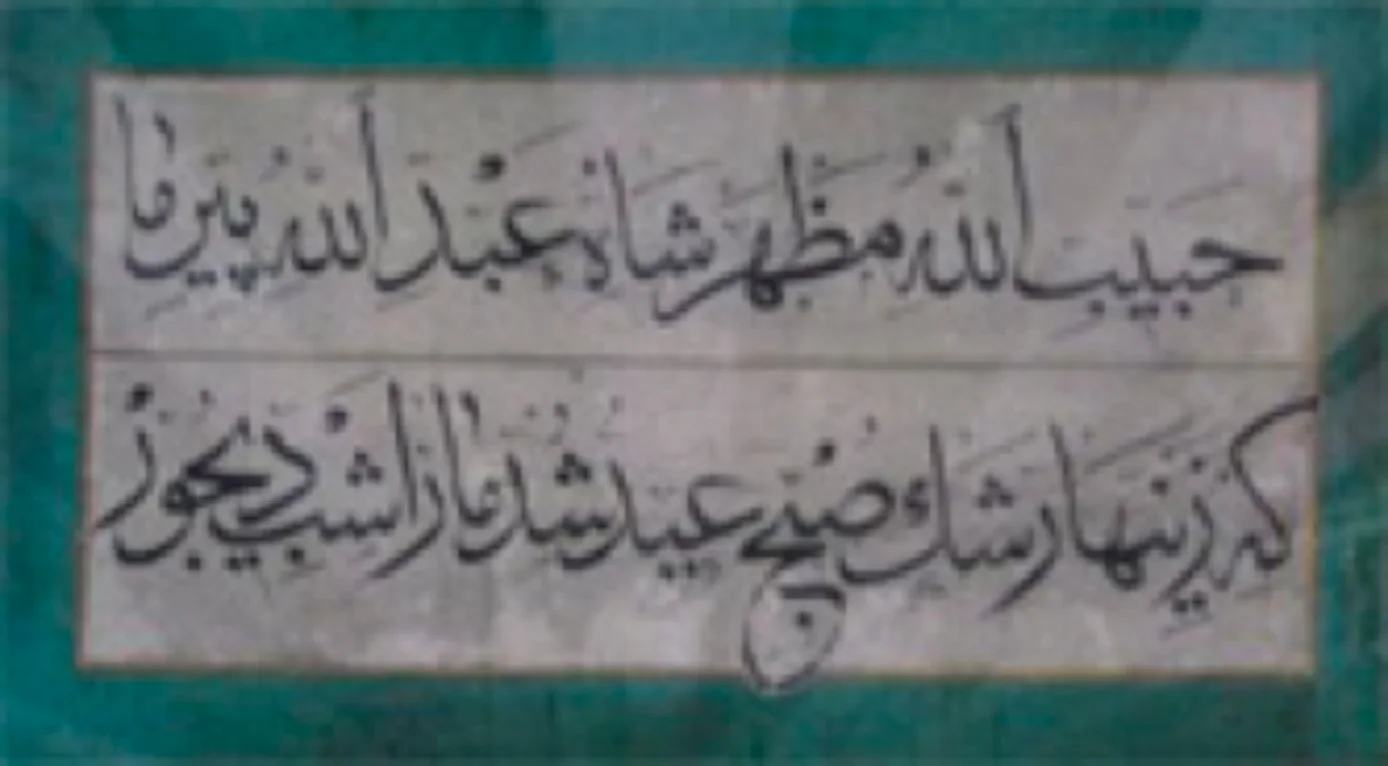 حَبِيبَ اللّٰهُ مَظْهَر شَاهْ عَبْدَ اللّٰهُ پِيرِ مَا
كِه زِينَهَا رَشكِ صُبْحِ عِيد شُد مَا رَا شَبِ دَيجُورْ